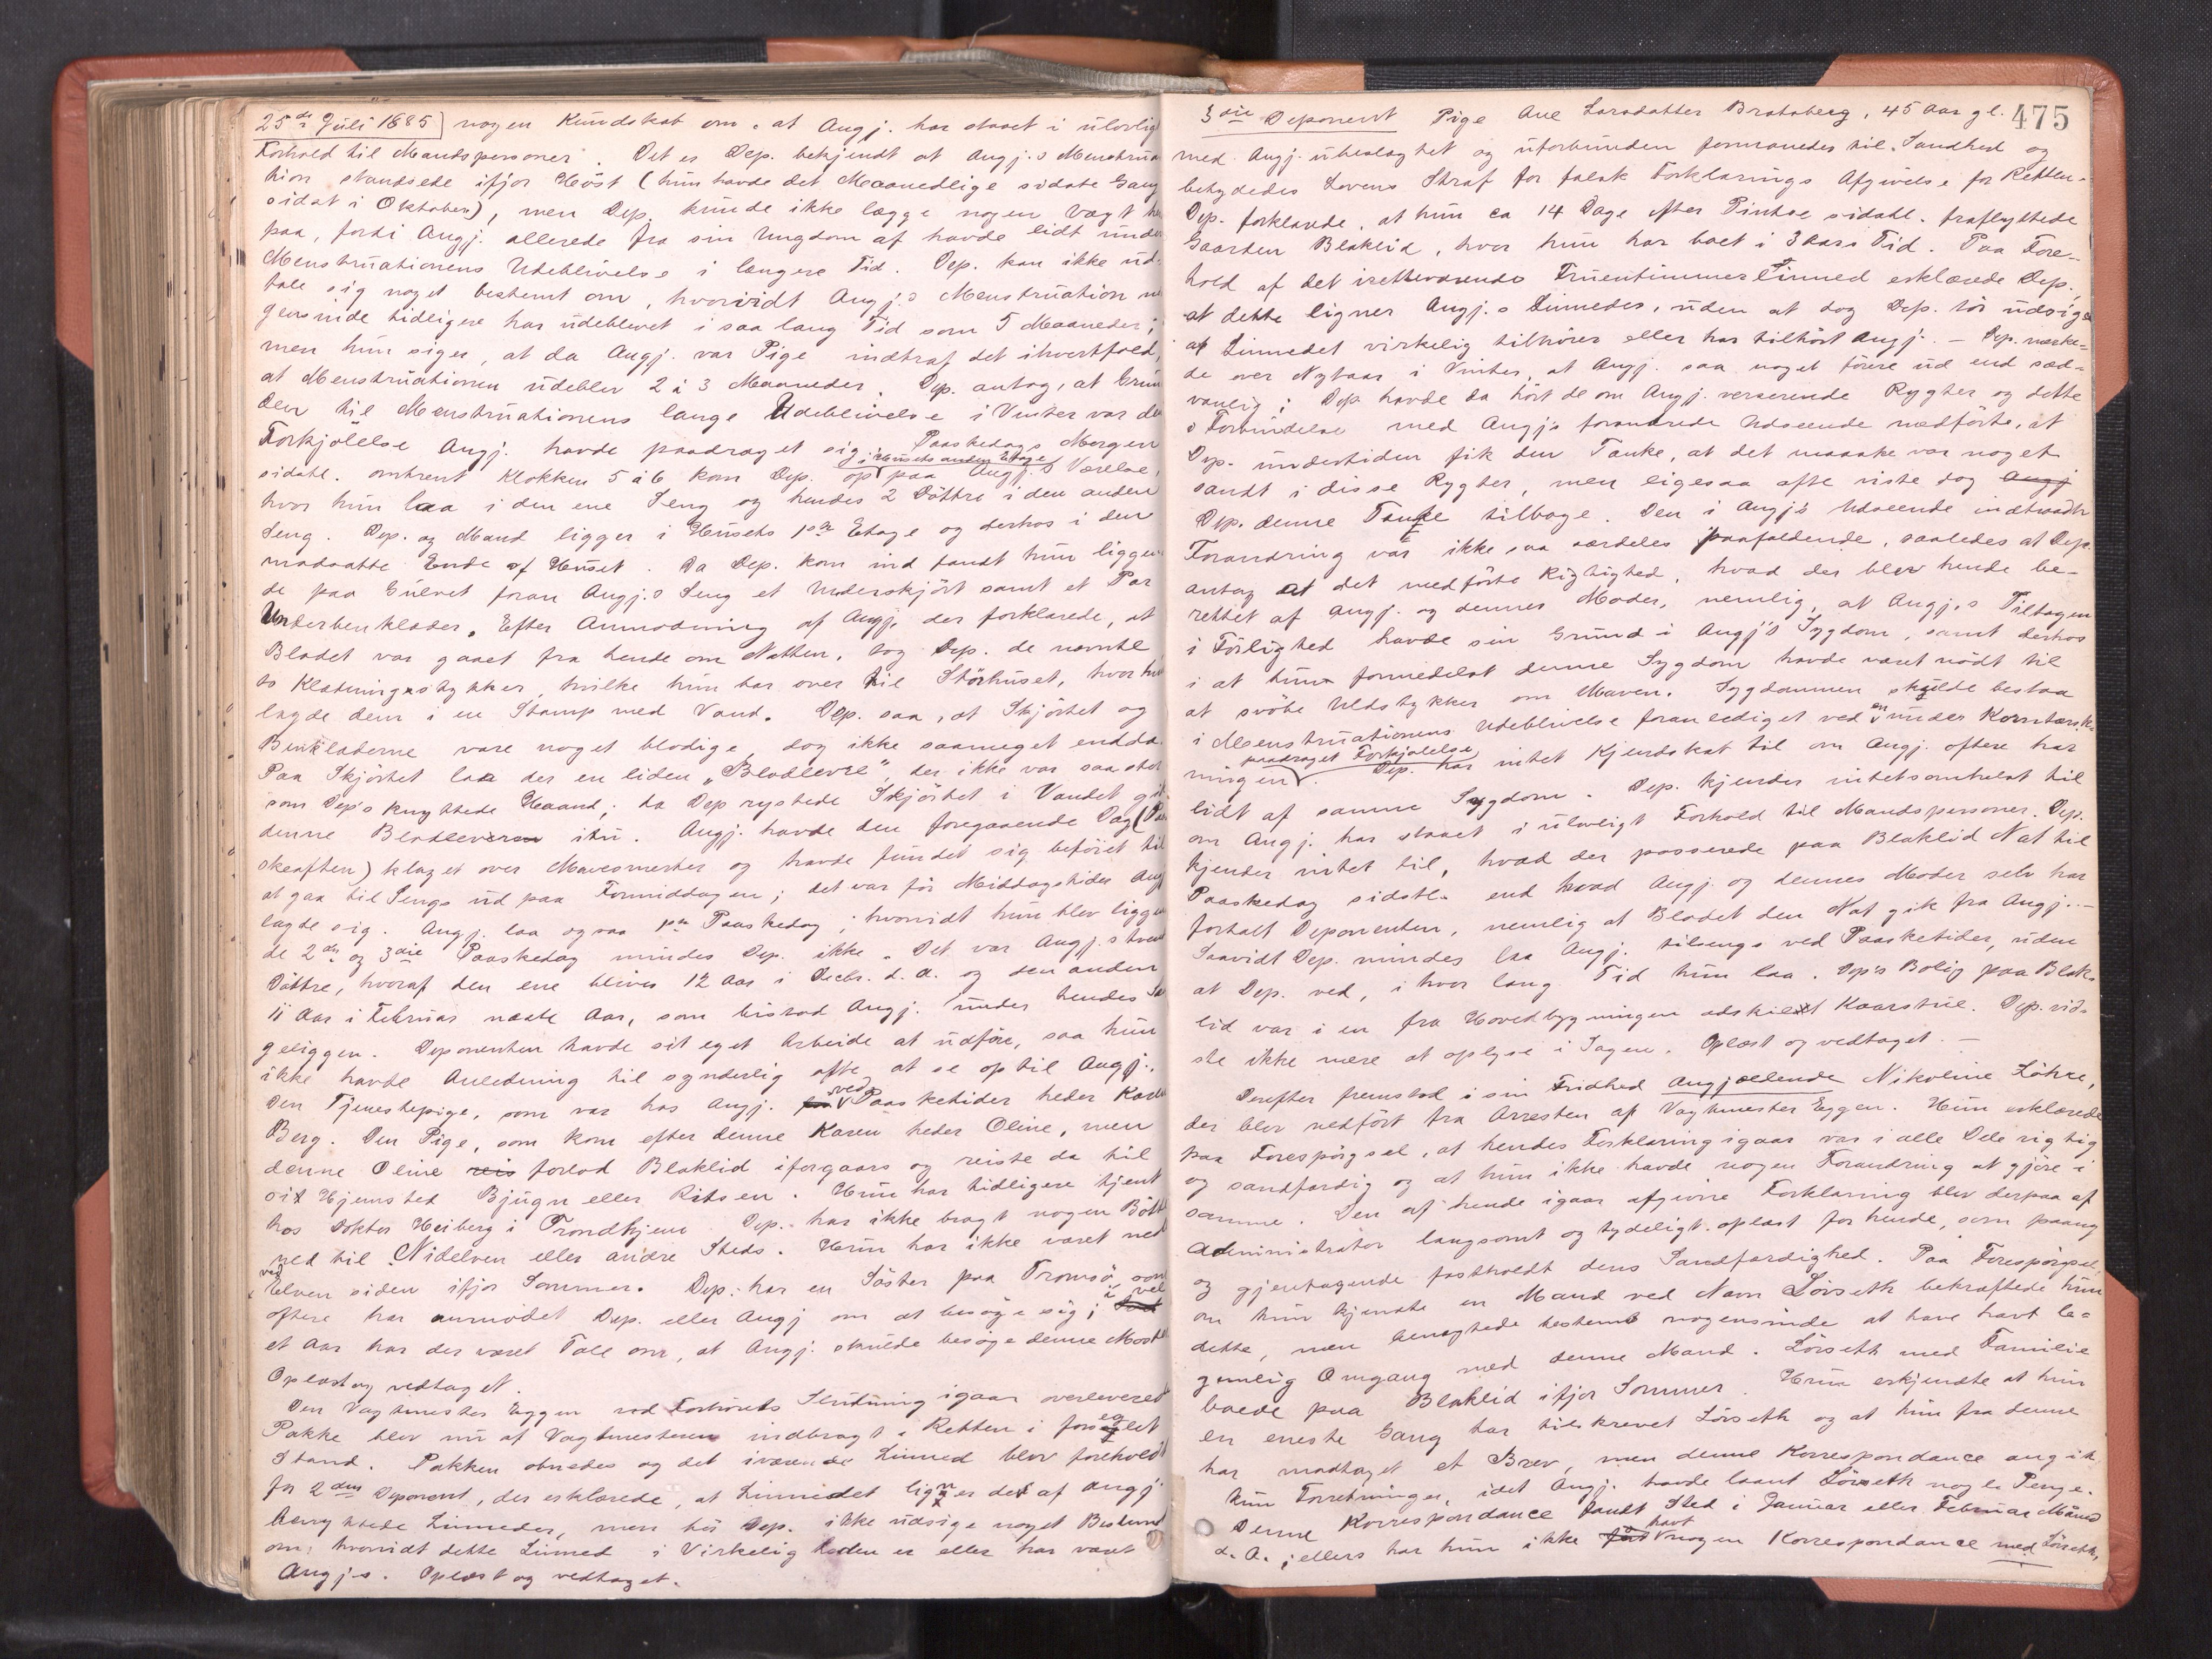 25de Juli 1885 nogen Kundskab om, at Angj. har staaet i ulovlig
Forhold til Mandspersoner. Det er Dep. bekjendt at Angj.s Menstrua
tion standsede ifjor Höst (hun havde det Maanedlige sidste Gang
sidst i Oktober), men Dep. kunde ikke lægge nogen Vægt her
paa, fordi Angj. allerede fra sin Ungdom af havde lidt under
Menstruationens Udeblivelse i længere Tid. Dep. kan ikke ud-
tale sig noget bestemt om, hvorvidt Angj.s Menstruation no
gensinde tidligere har udeblevet i saa lang Tid som 5 Maaneder;
men hun siger, at da Angj. var Pige indtraf det ihvertfald,
at Menstruationen udeblev 2 à 3 Maaneder. Dep. antog, at Grun
den til Menstruationens lange Udeblivelse i Vinter var den
Forkjölelse Angj. havde paadraget sig. Paaskedags Morgen
sidstl. omtrent Klokken 5 à 6 kom Dep. op i Husets anden Etage paa Angj.s Værelse,
hvor hun laa i den ene Seng og hendes 2 Döttre i den anden
Seng. Dep. og Mand ligger i Husets 1ste Etage og derhos i den
modsatte Ende af Huset. Da Dep. kom ind fandt hun liggen
de paa Gulvet foran Angj.s Seng et Underskjört samt et Par
Underbenklæder. Efter Anmodning af Angj. der forklarede, at
Blodet var gaaet fra hende om Natten, tog Dep. de nævnte
to Klædningsstykker, hvilke hun bar over til Störhuset, hvor hun
lagde dem i en Stamp med Vand. Dep. saa, at Skjörtet og
Benklæderne vare noget blodige, dog ikke saameget endda.
Paa Skjörtet laa der en liden „Blodlevre", der ikke var saa stor
som Dep's knyttede Haand; da Dep rystede Skjörtet i Vandet gik
denne Blodlevre itu. Angj. havde den foregaaende Dag (Paa
skeaften) klaget over Mavesmerter og havde fundet sig beföiet til
at gaa til Sengs ud paa Formiddagen; det var för Middagstider Angj
lagde sig. Angj. laa ogsaa 1ste Paaskedag; hvorvidt hun blev liggen
de 2den og 3die Paaskedag mindes Dep. ikke. Det var Angj.s tvende
Döttre, hvoraf den ene bliver 12 Aar i Decbr. d. A. og den anden
11 Aar i Februar næste Aar, som bistod Angj. under hendes Sen
geliggen. Deponenten havde sit eget Arbeide at udföre, saa hun
ikke havde Anledning til synderlig ofte at se op til Angj.
Den Tjenestepige, som var hos Angj. ved Paasketider heder Karen
Berg. Den Pige, som kom efter denne Karen heder Oline, men
denne Oline reis forlod Blaklid iforgaars og reiste da til
sit Hjemsted Bjugn eller Ridsen. Hun har tidligere tjent
hos Doktor Heiberg i Trondhjem. Dep. har ikke bragt nogen Bötte
ned til Nidelven eller andre Steds. Hun har ikke været ned
ved Elven siden ifjor Sommer. Dep. har en Söster paa Tromsö, som
oftere har anmodet Dep. eller Angj om at besöge sig; i vel
et Aar har der været Tale om, at Angj. skulde besöge denne Moster
Oplæst og vedtaget.
Den Vagtmester Eggen ved Forhörets Slutning igaar overleverede
Pakke blev nu af Vagtmesteren indbragt i Retten i forseglet
Stand. Pakken obnedes og det iværende Linned blev foreholdt
for 2den Deponent, der erklærede, at Linnedet ligner det af Angj
benyttede Linneder, men tör Dep. ikke udsige noget Bestemt
om, hvorvidt dette Linned i Virkeligheden er eller har været
Angj.s. Oplæst og vedtaget.
475
3die Deponent Pige Ane Larsdatter Bratsberg, 45 Aar gl.
med Angj. ubeslægtet og uforbunden formanedes til Sandhed og
betydedes Lovens Straf for falsk Forklarings Afgivelse for Retten.
Dep. forklarede, at hun ca 14 Dage efter Pintse sidstl. fraflyttede
Gaarden Blaklid, hvor hun har boet i 3 Aars Tid. Paa Fore-
hold af det iretteværende Fruentimmerlinned erklærede Dep.,
at dette ligner Angj.s Linneder, uden at dog Dep. tör udsige
at Linnedet virkelig tilhörer eller har tilhört Angj. — Dep. mærke-
de over Nytaar i Vinter, at Angj. saa noget förere ud end sæd-
vanlig; Dep. havde da hört de om Angj. verserende Rygter og dette
i Forbindelse med Angj.s forandrede Udseende medförte, at
Dep. undertiden fik den Tanke, at det maaske var noget
sandt i disse Rygter, men ligesaa ofte viste dog Angj
Dep. denne Tanke tilbage. Den i Angj.s Udseende indtraadte
Forandring var ikke saa særdeles paafaldende, saaledes at Dep.
antog at det medförte Rigtighed, hvad der blev hende be-
rettet af Angj. og dennes Moder, nemlig, at Angj.s Tiltagen
i Förlighed havde sin Grund i Angj's Sygdom, samt derhos
i at hun formedelst denne Sygdom havde været nödt til
at svöbe Uldstykker om Maven. Sygdommen skulde bestaa
i Menstruationens Udeblivelse foranlediget ved en under Korntærsk-
ningen paadraget Forkjölelse. Dep. har intet Kjendskab til om Angj. oftere har
lidt af samme Sygdom. Dep. kjender intetsomhelst til
om Angj. har staaet i ulovligt Forhold til Mandspersoner. Dep.
kjender intet til, hvad der passerede paa Blaklid Nat til
Paaskedag sidstl. end hvad Angj. og dennes Moder selv har
fortalt Deponenten, nemlig at Blodet den Nat gik fra Angj. —
Saavidt Dep. mindes laa Angj. tilsengs ved Paasketider, uden
at Dep. ved, i hvor lang Tid hun laa. Dep's Bolig paa Blak-
lid var i en fra Hovedbygningen adskilt Kaarstue. Dep. vid-
ste ikke mere at oplyse i Sagen. Oplæst og vedtaget. —
Derefter fremstod i sin Frihed Angjældende Nikoline Löhre,
der blev nedfört fra Arresten af Vagtmester Eggen. Hun erklærede
paa Forespörgsel, at hendes Forklaring igaar var i alle Dele rigtig
og sandfærdig og at hun ikke havde nogen Forandring at gjöre i
samme. Den af hende igaar afgivne Forklaring blev derpaa af
Administrator langsomt og tydeligt oplæst for hende, som paany
og gjentagende fastholdt dens Sandfærdighed. Paa Forespörgsel,
om hun kjendte en Mand ved Navn Lörseth bekræftede hun
dette, men benægtede bestemt nogensinde at have havt le-
gemlig Omgang med denne Mand. Lörseth med Familie
boede paa Blaklid ifjor Sommer. Hun erkjendte at hun
en eneste Gang har tilskrevet Lörseth og at hun fra denne
har modtaget et Brev, men denne Korrespondance angik
kun Forretninger, idet Angj. havde laant Lörseth nogle Penge.
Denne Korrespondance fandt Sted i Januar eller Februar Maaned
d. A.; ellers har hun ikke havt nogen Korrespondance med Lörseth,